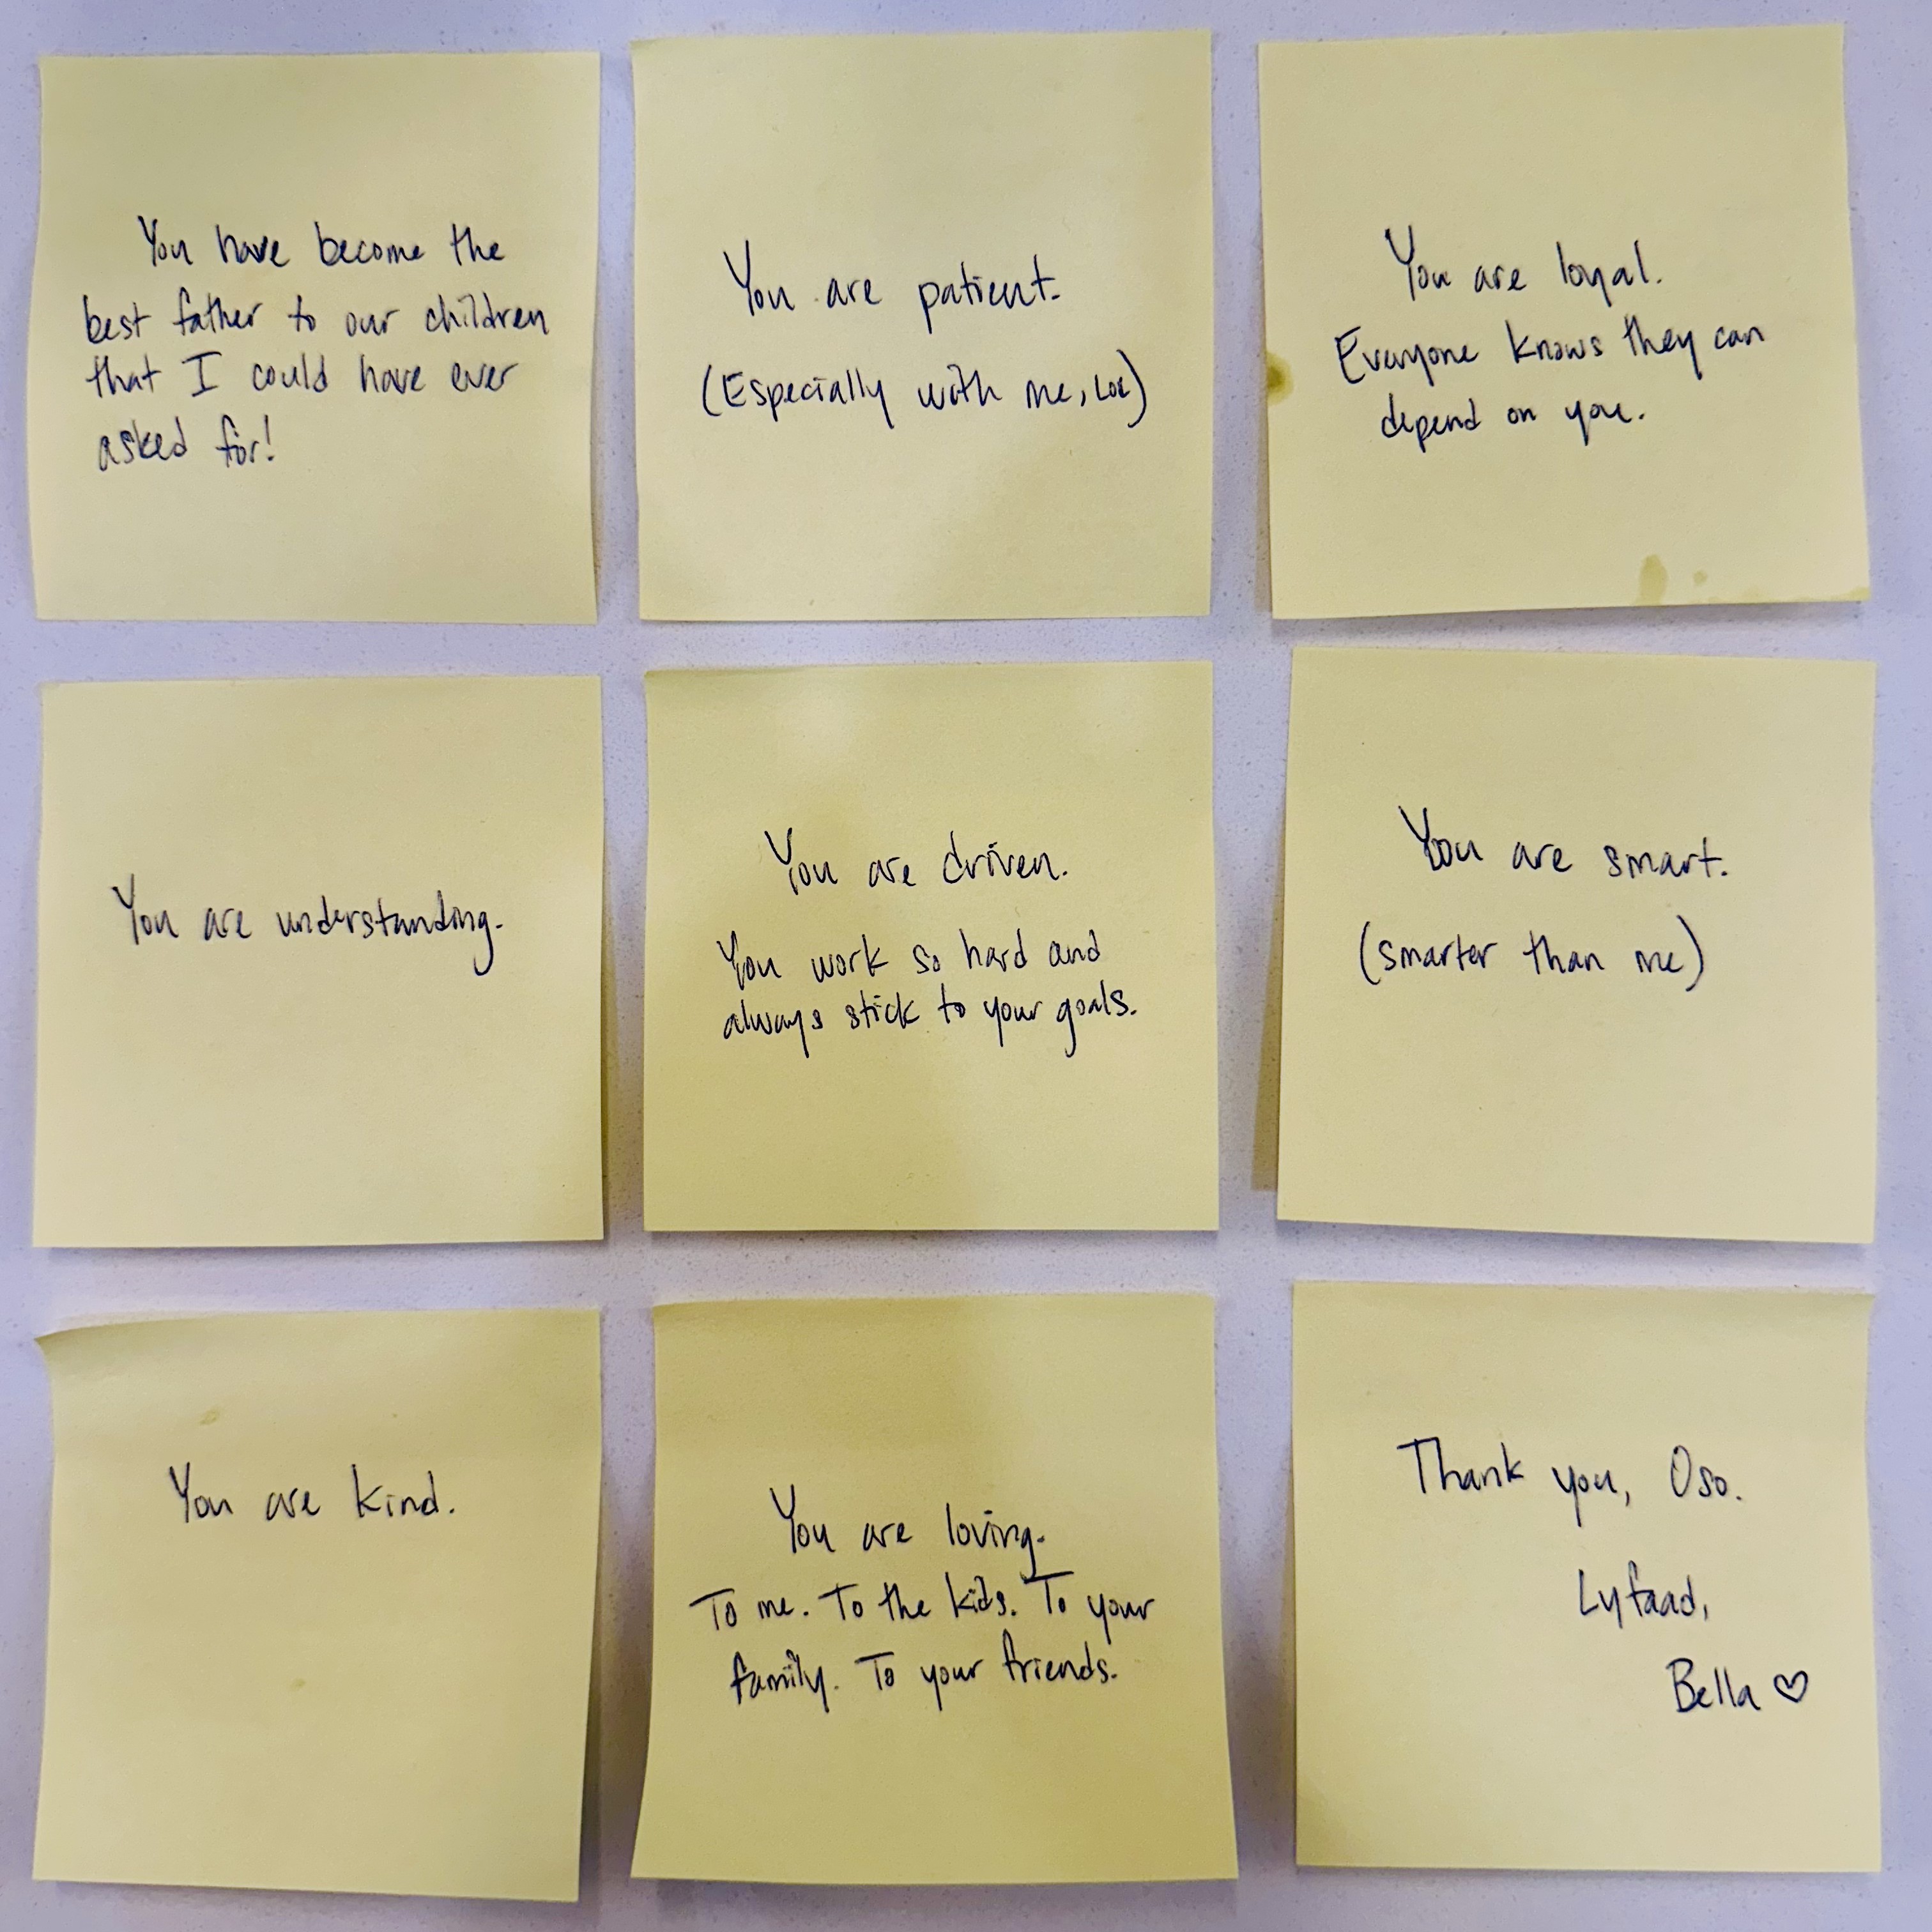 You have become the
best father to our children
that I could have ever
asked for!
You are patient.
(Especially with me, LOL)
You are loyal.
Everyone knows they can
depend on you.
You are understanding.
You are driven.
You work so hard and
always stick to your goals.
You are smart.
(smarter than me)
You are kind.
You are loving.
To me. To the kids. To your
family. To your friends.
Thank you, Oso.
Lyfaad,
Bella ♡